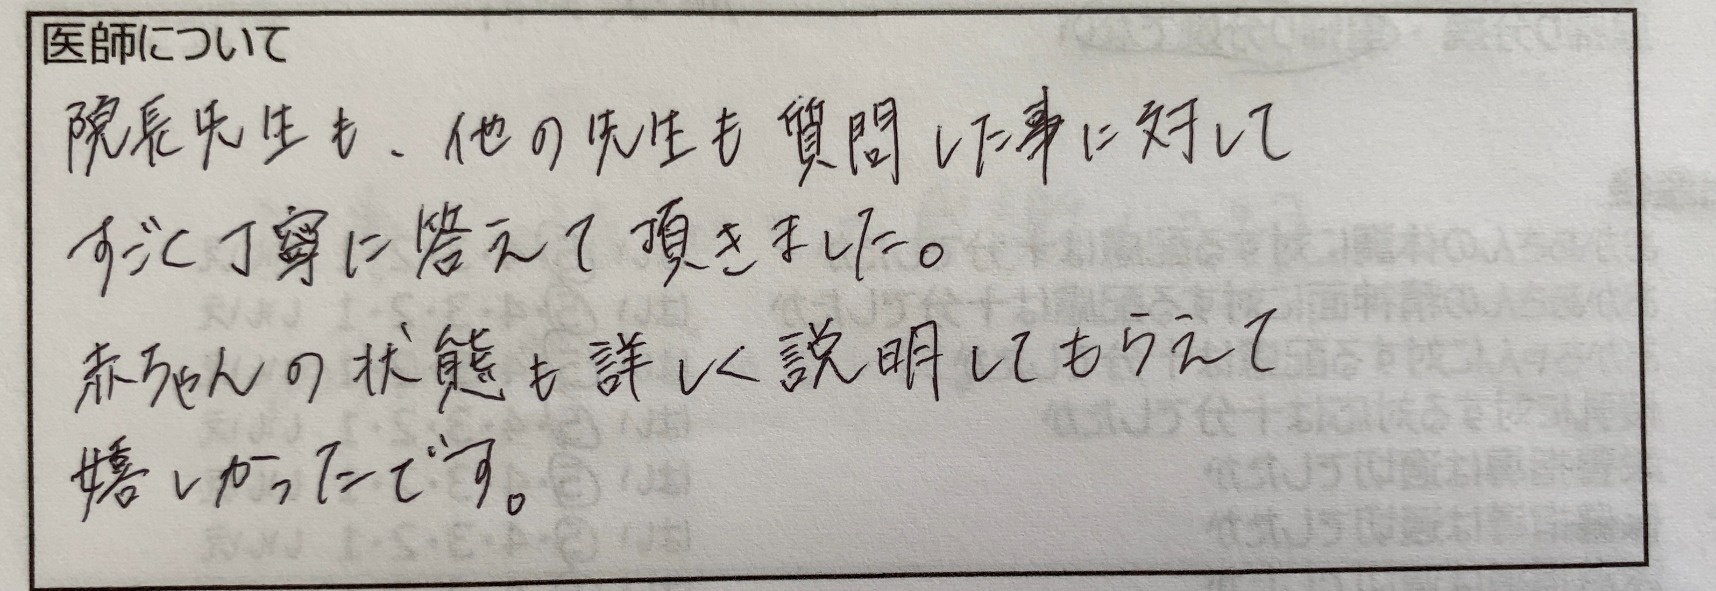 医師について
院長先生も、他の先生も質問した事に対して
すごく丁寧に答えて頂きました。
赤ちゃんの状態も詳しく説明してもらえて
嬉しかったです。